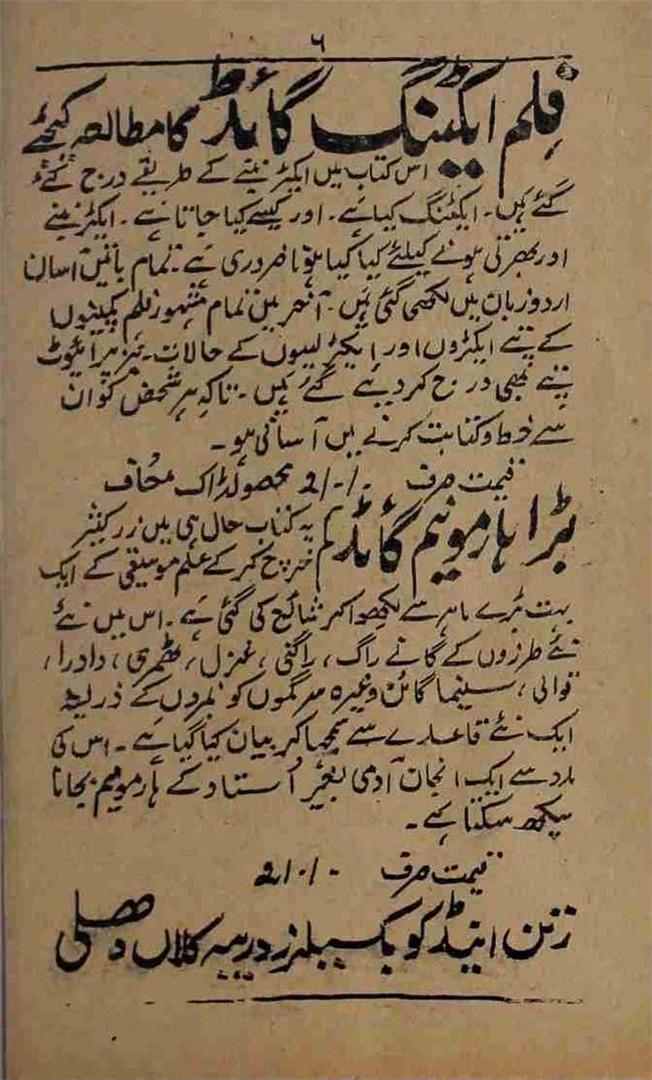 ۶
فلم ایکٹنگ گائڈ کا مطالعہ کیجئے
اس کتاب میں ایکٹر بننے کے طریقے درج کئے
گئے ہیں۔ ایکٹنگ کیا ہے۔ اور کیسے کیا جاتا ہے۔ ایکٹر بننے
اور بھرتی ہونے کیلئے کیا کیا ہونا ضروری ہے۔ تمام باتیں آسان
اردو زبان میں لکھی گئی ہیں۔ آخر میں تمام مشہور فلم کمپنیوں
کے پتے ایکٹروں اور ایکٹرلیسوں کے حالات۔ نیز پرائیوٹ
پتے بھی درج کر دیئے گئے ہیں۔ تاکہ ہر شخص کو ان
سے خط و کتابت کرنے میں آسانی ہو۔
قیمت صرف ۔/۔/2 محصولڈاک معاف
بڑا ہارمونیم گائڈ یہ کتاب حال ہی میں زر کثیر
خرچ کر کے علم موسیقی کے ایک
بہت بڑے ماہر سے لکھوا کر شائع کی گئی ہے۔ اس میں نئے
نئے طرزوں کے گانے راگ، راگنی، غزل، ٹھمری، دادرا،
قوالی، سینما گائن وغیرہ سرگموں کو نمبروں کے ذریعہ
ایک نئے قاعدے سے سمجھا کر بیان کیا گیا ہے۔ اس کی
مدد سے ایک انجان آدمی بغیر اُستاد کے ہارمونیم بجانا
سیکھ سکتا ہے۔
قیمت صرف ۔/۔/2
رتن اینڈ کو بکسیلرز دریبہ کلاں دھلی